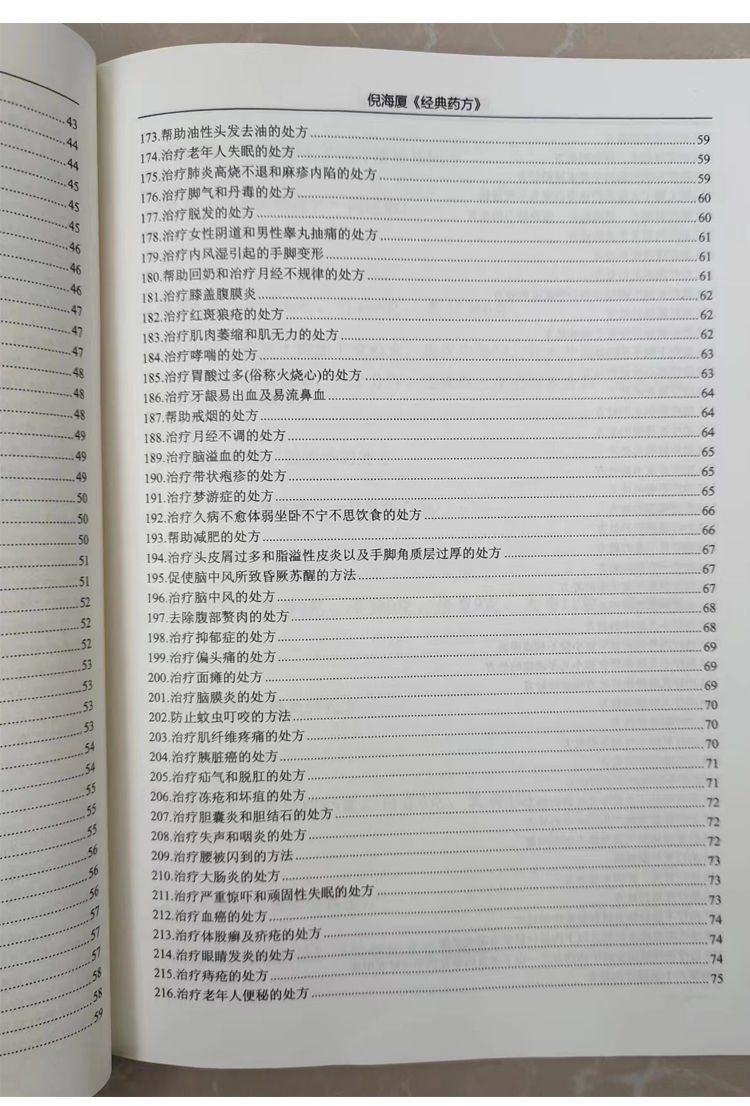 43
44
44
45
45
45
46
46
46
47
47
47
48
48
48
49
49
49
50
50
50
51
51
52
52
52
53
53
53
53
54
54
55
55
55
56
56
56
57
57
57
58
58
59
倪海厦《经典药方》
173.帮助油性头发去油的处方 59
174.治疗老年人失眠的处方 59
175.治疗肺炎高烧不退和麻疹内陷的处方 59
176.治疗脚气和丹毒的处方 60
177.治疗脱发的处方 60
178.治疗女性阴道和男性睾丸抽痛的处方 61
179.治疗内风湿引起的手脚变形 61
180.帮助回奶和治疗月经不规律的处方 61
181.治疗膝盖腹膜炎 62
182.治疗红斑狼疮的处方 62
183.治疗肌肉萎缩和肌无力的处方 62
184.治疗哮喘的处方 63
185.治疗胃酸过多(俗称火烧心)的处方 63
186.治疗牙龈易出血及易流鼻血 64
187.帮助戒烟的处方 64
188.治疗月经不调的处方 64
189.治疗脑溢血的处方 65
190.治疗带状疱疹的处方 65
191.治疗梦游症的处方 65
192.治疗久病不愈体弱坐卧不宁不思饮食的处方 66
193.帮助减肥的处方 66
194.治疗头皮屑过多和脂溢性皮炎以及手脚角质层过厚的处方 67
195.促使脑中风所致昏厥苏醒的方法 67
196.治疗脑中风的处方 67
197.去除腹部赘肉的处方 68
198.治疗抑郁症的处方 68
199.治疗偏头痛的处方 69
200.治疗面瘫的处方 69
201.治疗脑膜炎的处方 69
202.防止蚊虫叮咬的方法 70
203.治疗肌纤维疼痛的处方 70
204.治疗胰脏癌的处方 70
205.治疗疝气和脱肛的处方 71
206.治疗冻疮和坏疽的处方 71
207.治疗胆囊炎和胆结石的处方 72
208.治疗失声和咽炎的处方 72
209.治疗腰被闪到的方法 72
210.治疗大肠炎的处方 73
211.治疗严重惊吓和顽固性失眠的处方 73
212.治疗血癌的处方 73
213.治疗体股癣及疥疮的处方 74
214.治疗眼睛发炎的处方 74
215.治疗痔疮的处方 74
216.治疗老年人便秘的处方 75